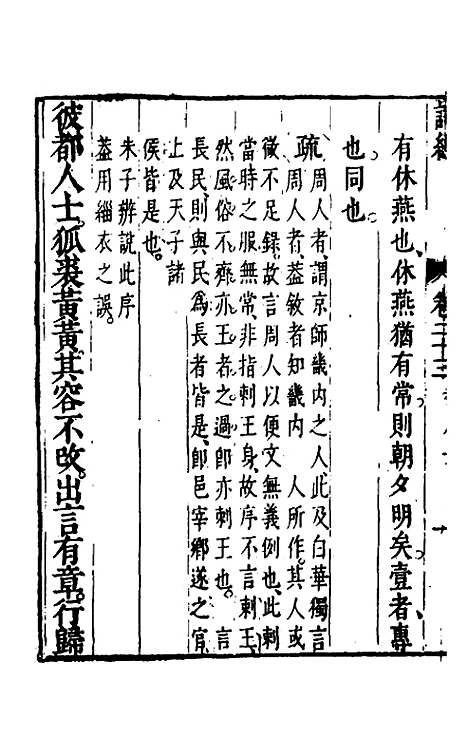 詩經 卷二十三
有休燕也、休燕猶有常則朝夕明矣。壹者、專
也同也
疏周人者、謂京師畿內之人、此及白華獨言
周人者、葢敘者知畿內 人所作。其人或
徵不足錄。故言周人以便文無義例也、此刺
當時之服無常、非指刺王身、故序不言刺王、
然風俗不齊亦王者之過、卽亦刺王也。 言
長民則與民爲長者皆是、卽邑宰鄉遂之官、
上及天子諸
侯皆是也。
朱子辨說此序
葢用緇衣之誤。
彼都人士。狐裘黃黃。其容不改。出言有章。行歸